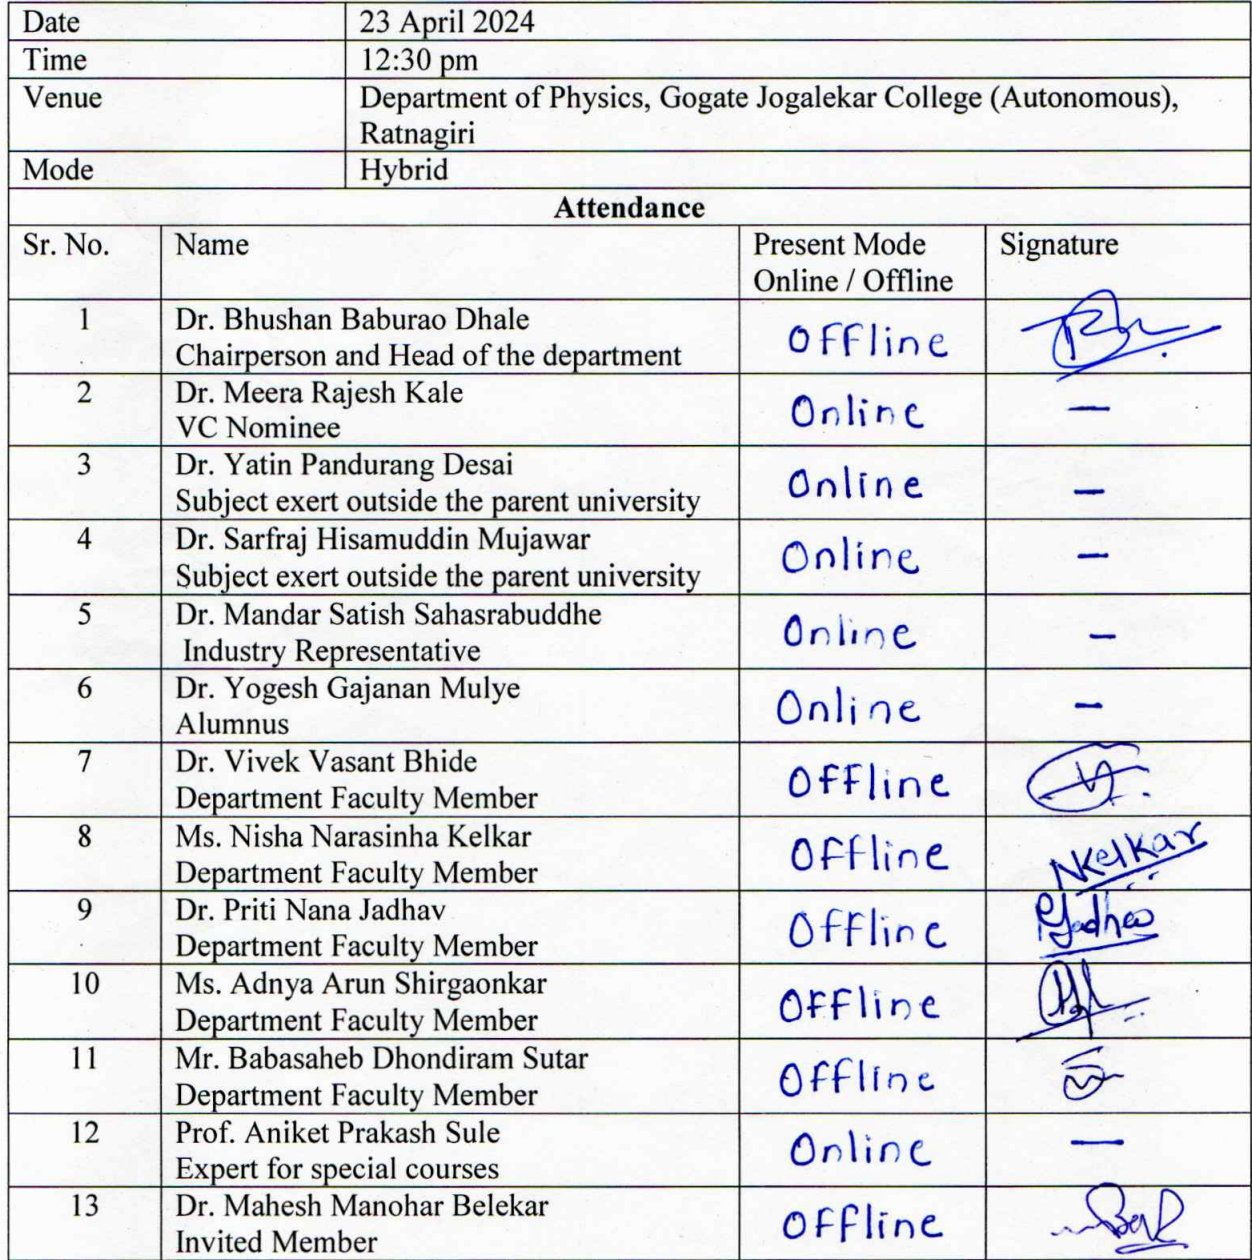 Date 23 April 2024
Time 12:30 pm
Venue Department of Physics, Gogate Jogalekar College (Autonomous),
Ratnagiri
Mode Hybrid
Attendance
Sr. No. Name Present Mode Signature
Online / Offline
1 Dr. Bhushan Baburao Dhale
Chairperson and Head of the department Offline
2 Dr. Meera Rajesh Kale
VC Nominee Online —
3 Dr. Yatin Pandurang Desai
Subject exert outside the parent university Online —
4 Dr. Sarfraj Hisamuddin Mujawar
Subject exert outside the parent university Online —
5 Dr. Mandar Satish Sahasrabuddhe
Industry Representative Online —
6 Dr. Yogesh Gajanan Mulye
Alumnus Online —
7 Dr. Vivek Vasant Bhide
Department Faculty Member Offline
8 Ms. Nisha Narasinha Kelkar
Department Faculty Member Offline NKelkar
9 Dr. Priti Nana Jadhav
Department Faculty Member Offline PJadhav
10 Ms. Adnya Arun Shirgaonkar
Department Faculty Member Offline
11 Mr. Babasaheb Dhondiram Sutar
Department Faculty Member Offline
12 Prof. Aniket Prakash Sule
Expert for special courses Online —
13 Dr. Mahesh Manohar Belekar
Invited Member Offline